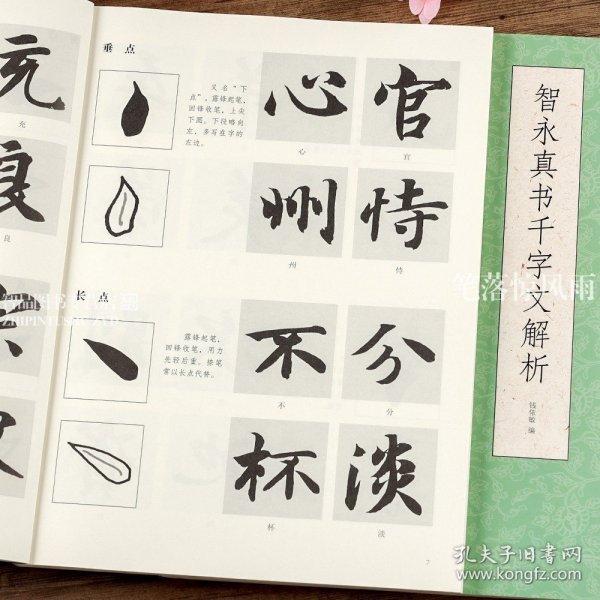 充
良
垂点
又名“下
点”，露锋起笔，
回锋收笔，上尖
下圆，下段略向
左，多写在字的
左边。
心 官
心 官
州 恃
州 恃
长点
露锋起笔，
回锋收笔，用力
先轻后重。捺笔
常以长点代替。
不 分
不 分
杯 淡
杯 淡
7
智永真书千字文解析
钱依敏 编
笔落惊风雨
ZHIPINTUSHU ZYD
孔夫子旧书网
www.kongfz.com